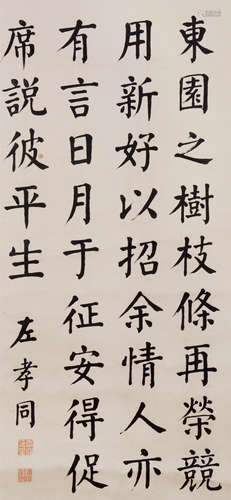 東園之樹枝條再榮競
用新好以招余情人亦
有言日月于征安得促
席說彼平生
左孝同